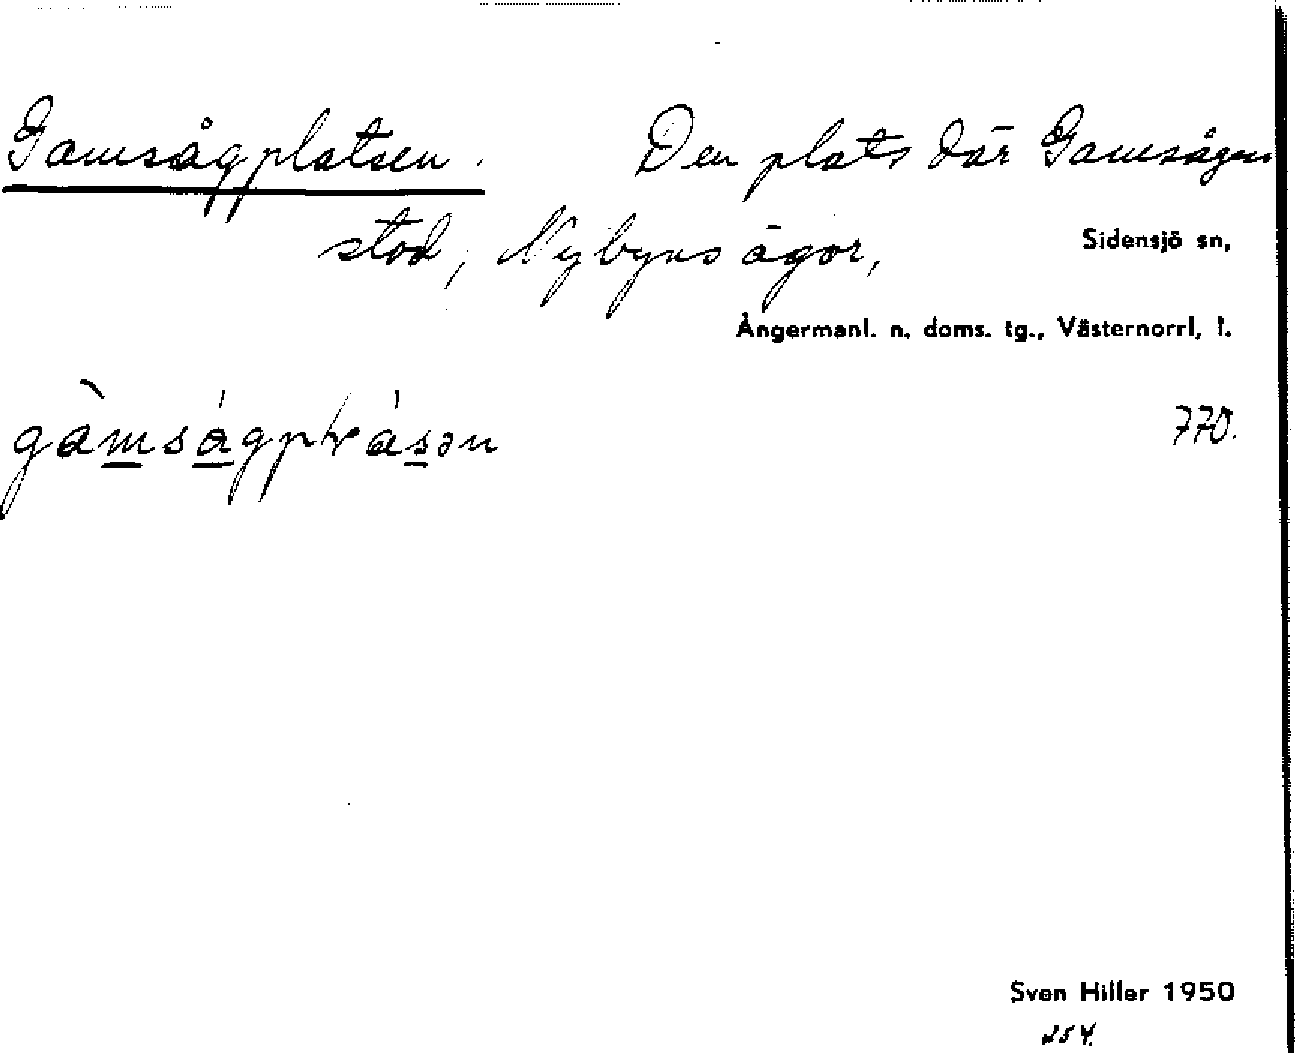 Gamsågplatsen. Den plats där Gamsågen
stod, Nybyns ägor, Sidensjö sn,
Ångermanl. n. doms. tg., Västernorrl. l.
770.
Sven Hiller 1950
254.